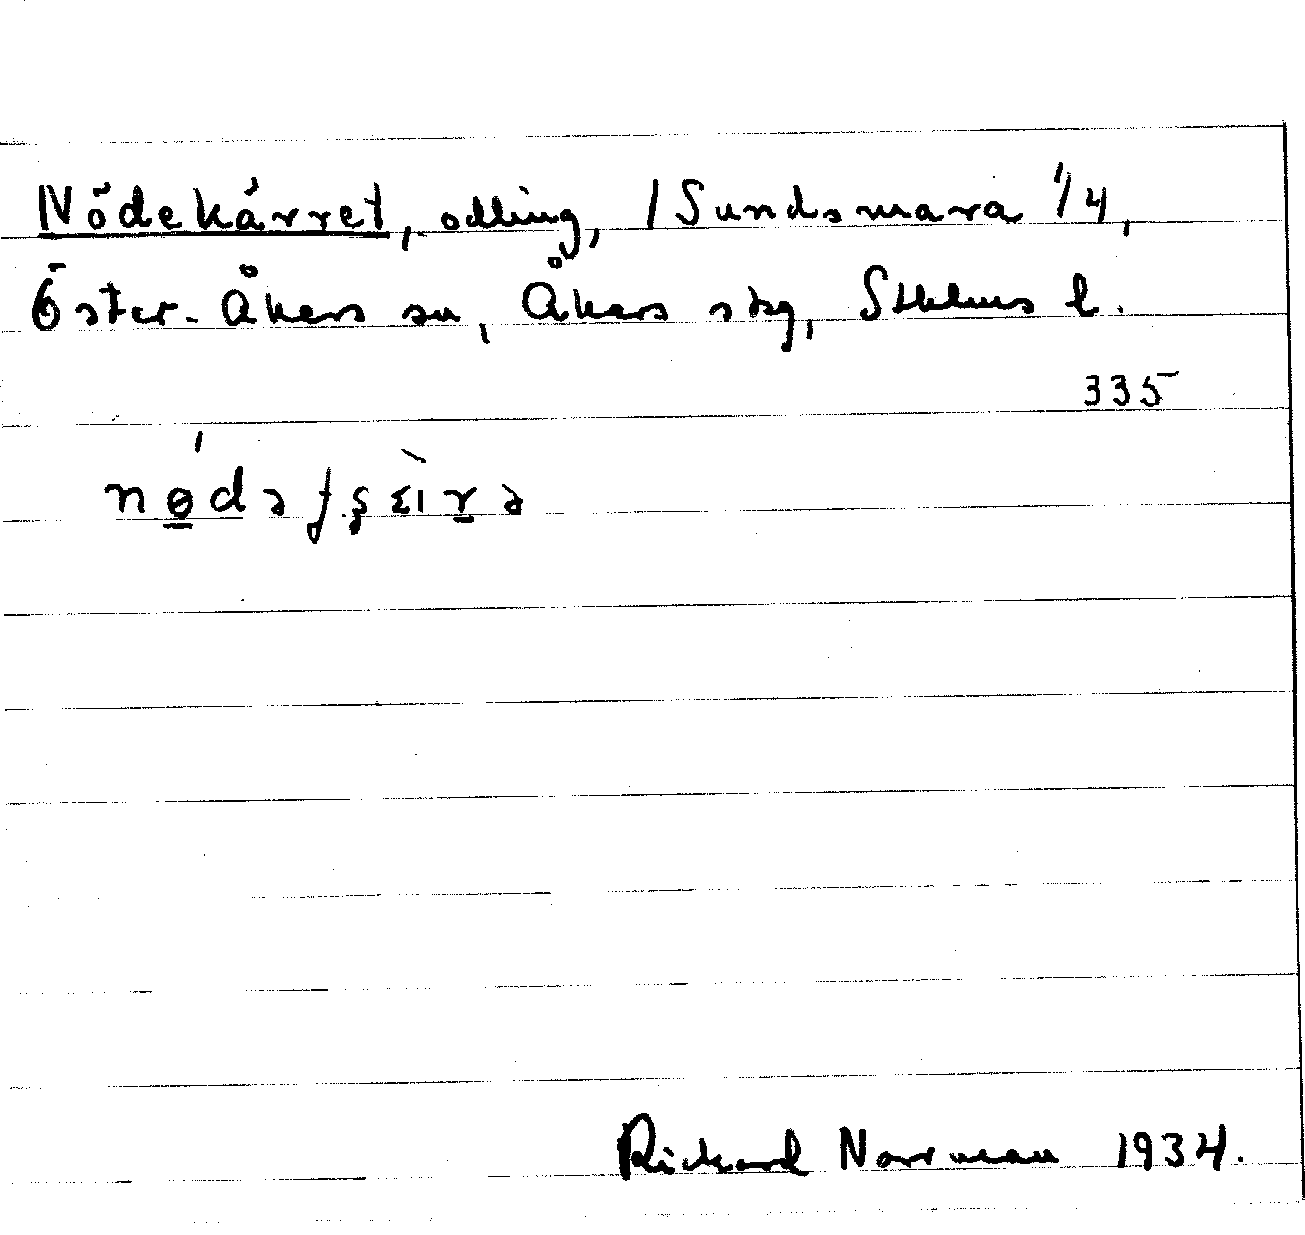 Nödekärret, odling, / Sundsmara 1/4,
Öster-Åkers sn, Åkers skg, Sthlms l.
335
nǿ̱dəʃʂɛìɽə
Rickard Norrman 1934.